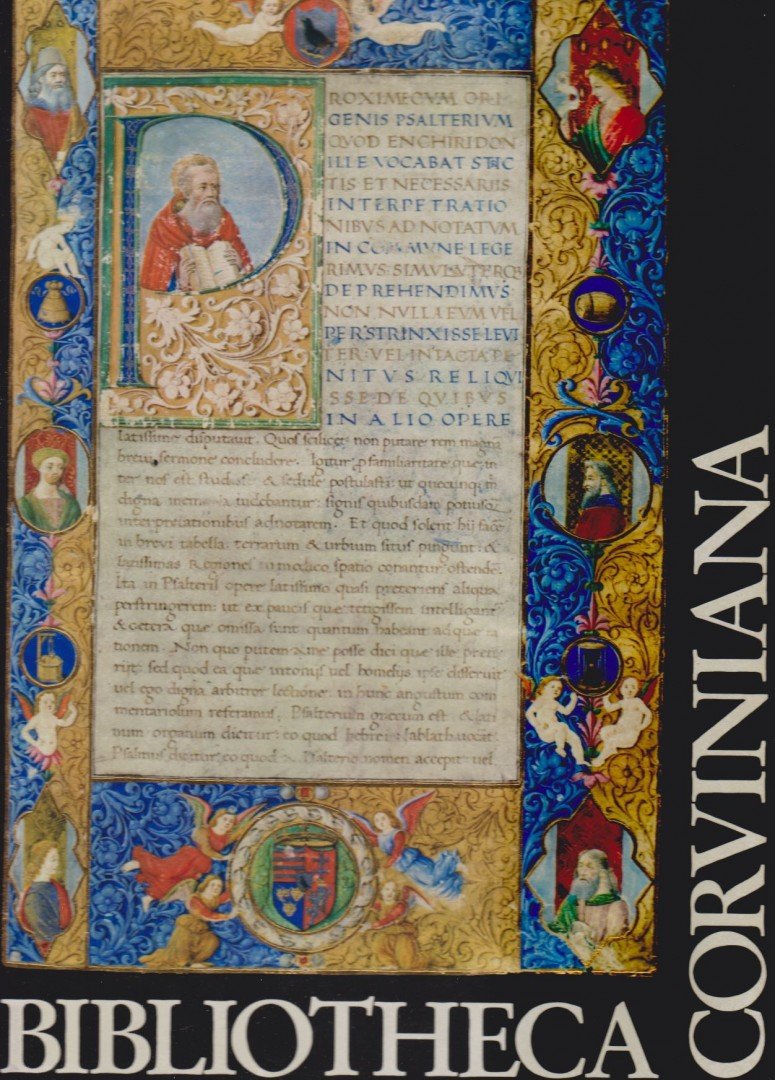 ROXIME CVM ORI
GENIS PSALTERIVM
QVOD ENCHIRIDON
ILLE VOCABAT STRIC
TIS ET NECESSARIIS
INTERPETRATIO
NIBVS ADNOTATVM
IN COMMVNE LEGE
RIMVS SIMVL VTERQ
DEPREHENDIMVS
NON NVLLA EVM VEL
PERSTRINXISSE LEVI
TER VEL INTACTA PE
NITVS RELIQVI
SSE DE QVIBVS
IN ALIO OPERE
latissime disputavit. Quos scilicet non putare rem magna
brevi sermone concludere. Igitur p familiaritate que in
ter nos est studiose & sedule postulasti: ut quecunq in
digna memoria videbantur: signis quibusdam potius q
interpretationibus adnotarem. Et quod solent hij face
in brevi tabella: terrarum & urbium situs pingunt: &
latissimas Regiones in modico spatio conantur ostende.
Ita in Psalterii opere latissimo quasi preteriens aliqua
perstringerem: ut ex paucis que tetigissem intelligant
& cetera que omissa sunt quantum habeant ad que ra
tionem. Non quo putem a me posse dici que ille prete
rijt: sed quod ea que in tomis vel homelijs ipse disseruit
vel ego digna arbitror lectione: in hunc angustum com
mentariolum referamus. Psalterium grecum est: & lati
num organum dicitur: eo quod hebrei: vocat
Psalmus dicitur: eo quod a Psalterio nomen accepit vel
BIBLIOTHECA
CORVINIANA